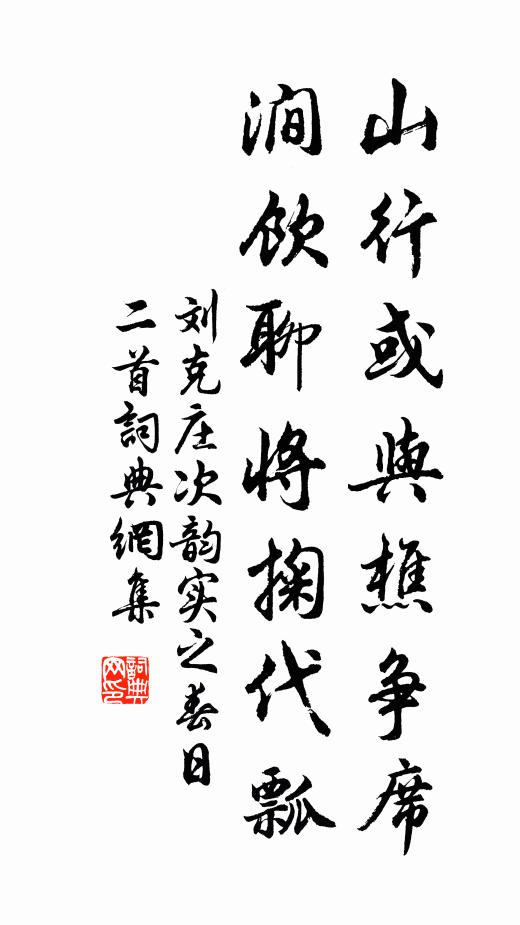 山行或與樵争席
澗飲聊將掬代瓢
刘克庄次韵实之春日
二首詞典網集
詞典
网印